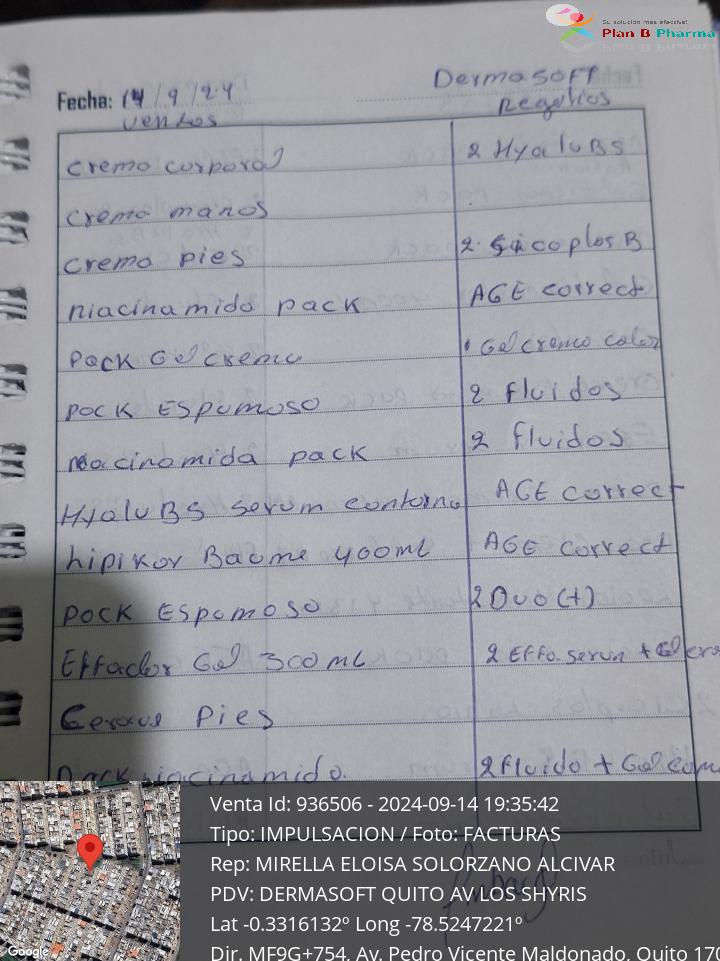 Su solucion mas efectiva!
Plan B Pharma
Dermasoft
Fecha: 14/9/24
ventas
Regalios
crema corporal
2 Hyalu B5
crema manos
crema pies
2 Cicaplas B
niacinamida pack
AGE correct
Pack Gel crema
1 Gel crema color
Pack Espumoso
2 fluidos
niacinamida pack
2 fluidos
Hyalu B5 serum contorno
AGE correct
lipikar Baume 400ml
AGE correct
Pack Espumoso
2 Duo (+)
Effaclar Gel 300 mL
2 Effa. serun + Gel
Cerave Pies
Pack niacinamida.
2 fluido + Gel
Venta Id: 936506 - 2024-09-14 19:35:42
Tipo: IMPULSACION / Foto: FACTURAS
Rep: MIRELLA ELOISA SOLORZANO ALCIVAR
PDV: DERMASOFT QUITO AV LOS SHYRIS
Lat -0.3316132º Long -78.5247221º
Dir. MF9G+754, Av. Pedro Vicente Maldonado, Quito 170
Google